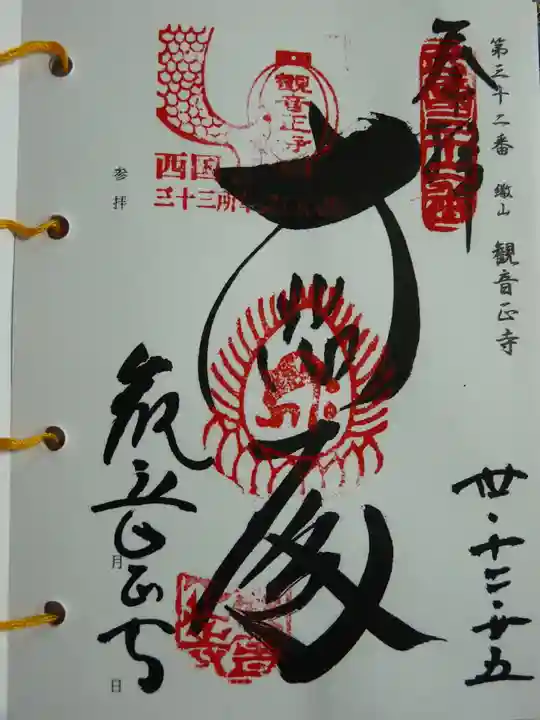 第三十二番 繖山 観音正寺
奉拝
卅・十二・廿五
観音正寺
西国
三十三所
大悲殿
参拝
観音正寺
月
日